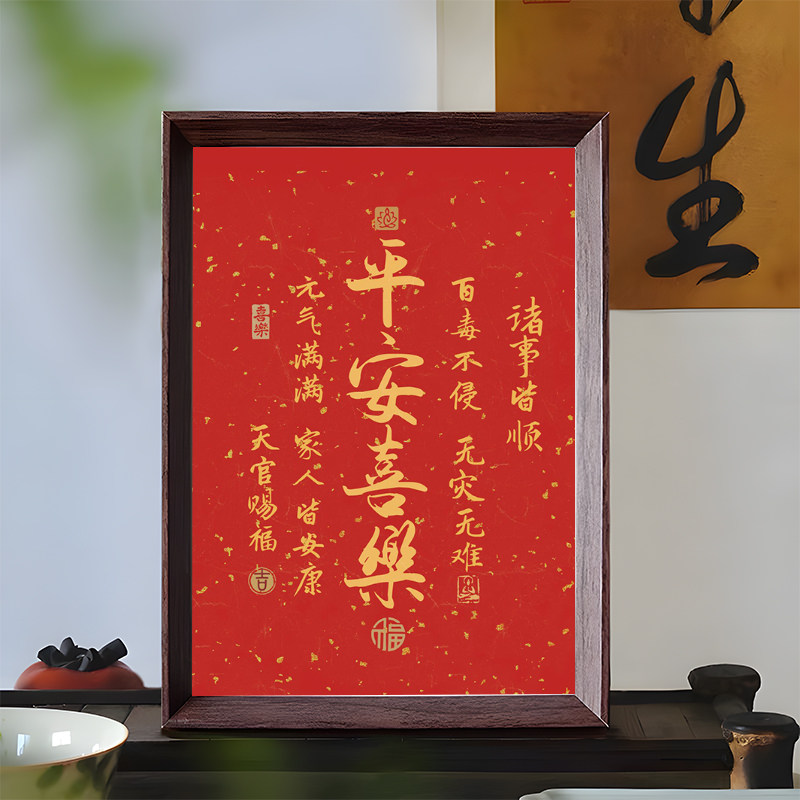 生
诸事皆顺
百毒不侵 无灾无难
平安喜樂
福
元气满满 家人皆安康
喜樂
天官赐福
吉